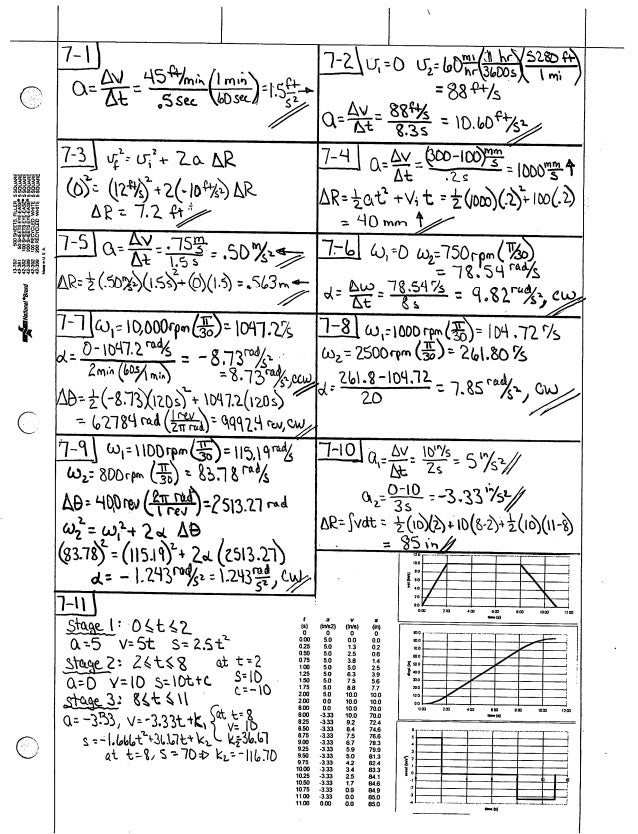 7-1
a = Δv/Δt = 45 ft/min / .5 sec (1 min / 60 sec) = 1.5 ft/s² →
7-2 v₁=0 v₂=60 mi/hr (1 hr / 3600 s)(5280 ft / 1 mi)
= 88 ft/s
a = Δv/Δt = 88 ft/s / 8.3 s = 10.60 ft/s²
7-3 v_f² = v_i² + 2a ΔR
(0)² = (12 ft/s)² + 2(-10 ft/s²) ΔR
ΔR = 7.2 ft
7-4 a = Δv/Δt = (300-100) mm/s / .2 s = 1000 mm/s² ↑
ΔR = ½at² + v_i t = ½(1000)(.2)² + 100(.2)
= 40 mm ↑
7-5 a = Δv/Δt = .75 m/s / 1.5 s = .50 m/s² ←
ΔR = ½(.50 m/s²)(1.5s)² + (0)(1.5) = .563 m ←
7-6 ω₁=0 ω₂=750 rpm (π/30)
= 78.54 rad/s
α = Δω/Δt = 78.54 r/s / 8 s = 9.82 rad/s², cw
7-7 ω₁=10,000 rpm (π/30) = 1047.2 r/s
α = 0-1047.2 rad/s / 2 min (60s/1 min) = -8.73 rad/s²
= 8.73 rad/s², ccw
Δθ = ½(-8.73)(120s)² + 1047.2(120s)
= 62784 rad (1 rev / 2π rad) = 9992.4 rev, cw
7-8 ω₁=1000 rpm (π/30) = 104.72 r/s
ω₂ = 2500 rpm (π/30) = 261.80 r/s
α = 261.8-104.72 / 20 = 7.85 rad/s², cw
7-9 ω₁=1100 rpm (π/30) = 115.19 rad/s
ω₂ = 800 rpm (π/30) = 83.78 rad/s
Δθ = 400 rev (2π rad / 1 rev) = 2513.27 rad
ω₂² = ω₁² + 2α Δθ
(83.78)² = (115.19)² + 2α (2513.27)
α = -1.243 rad/s² = 1.243 rad/s², cw
7-10 a₁ = Δv/Δt = 10 in/s / 2s = 5 in/s²
a₂ = 0-10 / 3s = -3.33 in/s²
ΔR = ∫vdt = ½(10)(2) + 10(8-2) + ½(10)(11-8)
= 85 in
7-11
Stage 1: 0≤t≤2
a=5 v=5t s=2.5t²
Stage 2: 2≤t≤8 at t=2
a=0 v=10 s=10t+c s=10
c=-10
Stage 3: 8≤t≤11
a=-3.33, v=-3.33t+k₁ {at t=8
v=10
s=-1.666t²+36.67t+k₂ k₁=36.67
at t=8, s=70 ⇒ k₂=-116.70
t a v s
(s) (in/s2) (in/s) (in)
0 0 0 0
0.00 5.0 0.0 0.0
0.25 5.0 1.3 0.2
0.50 5.0 2.5 0.6
0.75 5.0 3.8 1.4
1.00 5.0 5.0 2.5
1.25 5.0 6.3 3.9
1.50 5.0 7.5 5.6
1.75 5.0 8.8 7.7
2.00 5.0 10.0 10.0
2.00 0.0 10.0 10.0
8.00 0.0 10.0 70.0
8.00 -3.33 10.0 70.0
8.25 -3.33 9.2 72.4
8.50 -3.33 8.4 74.6
8.75 -3.33 7.5 76.6
9.00 -3.33 6.7 78.3
9.25 -3.33 5.9 79.9
9.50 -3.33 5.0 81.3
9.75 -3.33 4.2 82.4
10.00 -3.33 3.4 83.3
10.25 -3.33 2.5 84.1
10.50 -3.33 1.7 84.6
10.75 -3.33 0.9 84.9
11.00 -3.33 0.0 85.0
11.00 0.00 0.0 85.0
National Brand